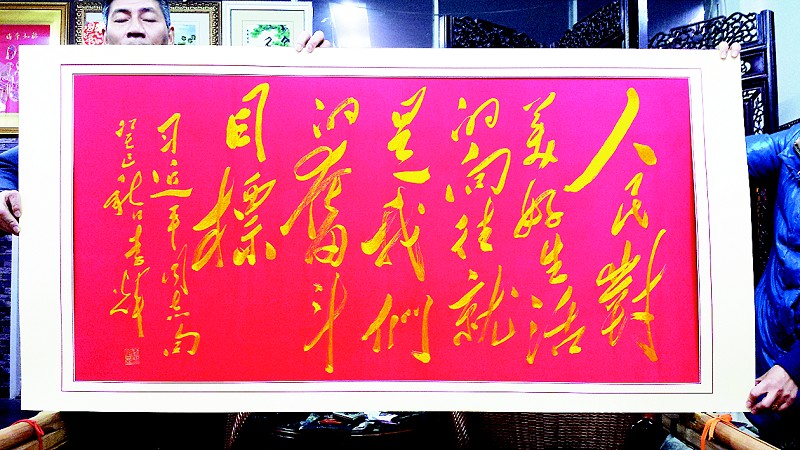 人民對
美好生活
的向往就
是我們
的奮斗
目標
习近平同志句
癸巳